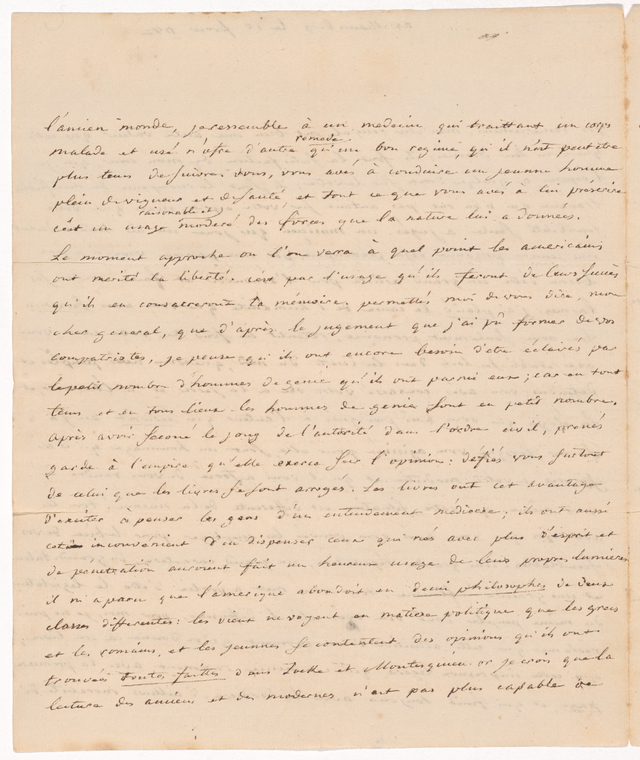 l'ancien monde, je ressemble à un medecin qui traittant un corps
malade et usé n'ose d'autre remede qu'un bon regime, qu'il n'ait peut être
plus tems de suivre; vous, vous avés à conduire un jeune homme
plein de vigueur et de santé et tout ce que vous avés à lui prescrire
c'est un usage raisonable et moderé des forces que la nature lui a données.
Le moment approche où l'on verra à quel point les americains
ont merité la liberté. c'est par l'usage qu'ils feront de leurs succès
qu'ils en consacreront la mémoire. permettés moi de vous dire, mon
cher general, que d'après le jugement que j'ai pû former de vos
compatriotes, je pense qu'ils ont encore besoin d'être éclairés par
le petit nombre d'hommes de genie qu'ils ont parmi eux; car en tout
tems et en tous lieux les hommes de genie sont en petit nombre.
après avoir secoué le joug de l'autorité dans l'ordre civil, prenés
garde à l'empire qu'elle exerce sur l'opinion: défiés vous surtout
de celui que les livres se sont arrogés. Les livres ont cet avantage
d'exciter à penser les gens d'un entendement médiocre; ils ont aussi
cet inconvénient d'en dispenser ceux qui nés avec plus d'esprit et
de pénétration auroient fait un heureux usage de leurs propres lumieres
il m'a paru que l'amérique abondoit en demi philosophes de deux
classes differentes: les vieux ne voyent en matière politique que les grecs
et les romains, et les jeunes se contentent des opinions qu'ils ont
trouvées toutes faittes dans Locke et Montesquieu or je crois que la
lecture des anciens et des modernes n'est pas plus capable de